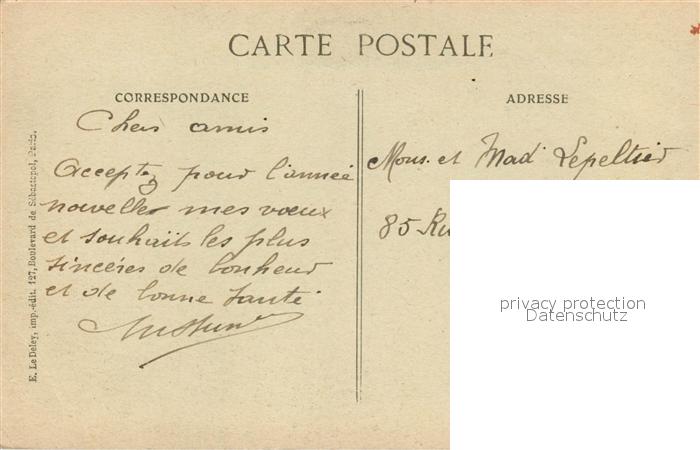 CARTE POSTALE
CORRESPONDANCE
Chers amis
Acceptez pour l'année
nouvelle mes vœux
et souhaits les plus
sincères de bonheur
et de bonne santé
ADRESSE
Mons. et Mad Lepeltier
85 Ru
E. Le Deley, imp.-édit. 127, Boulevard de Sébastopol, Paris.
privacy protection
Datenschutz